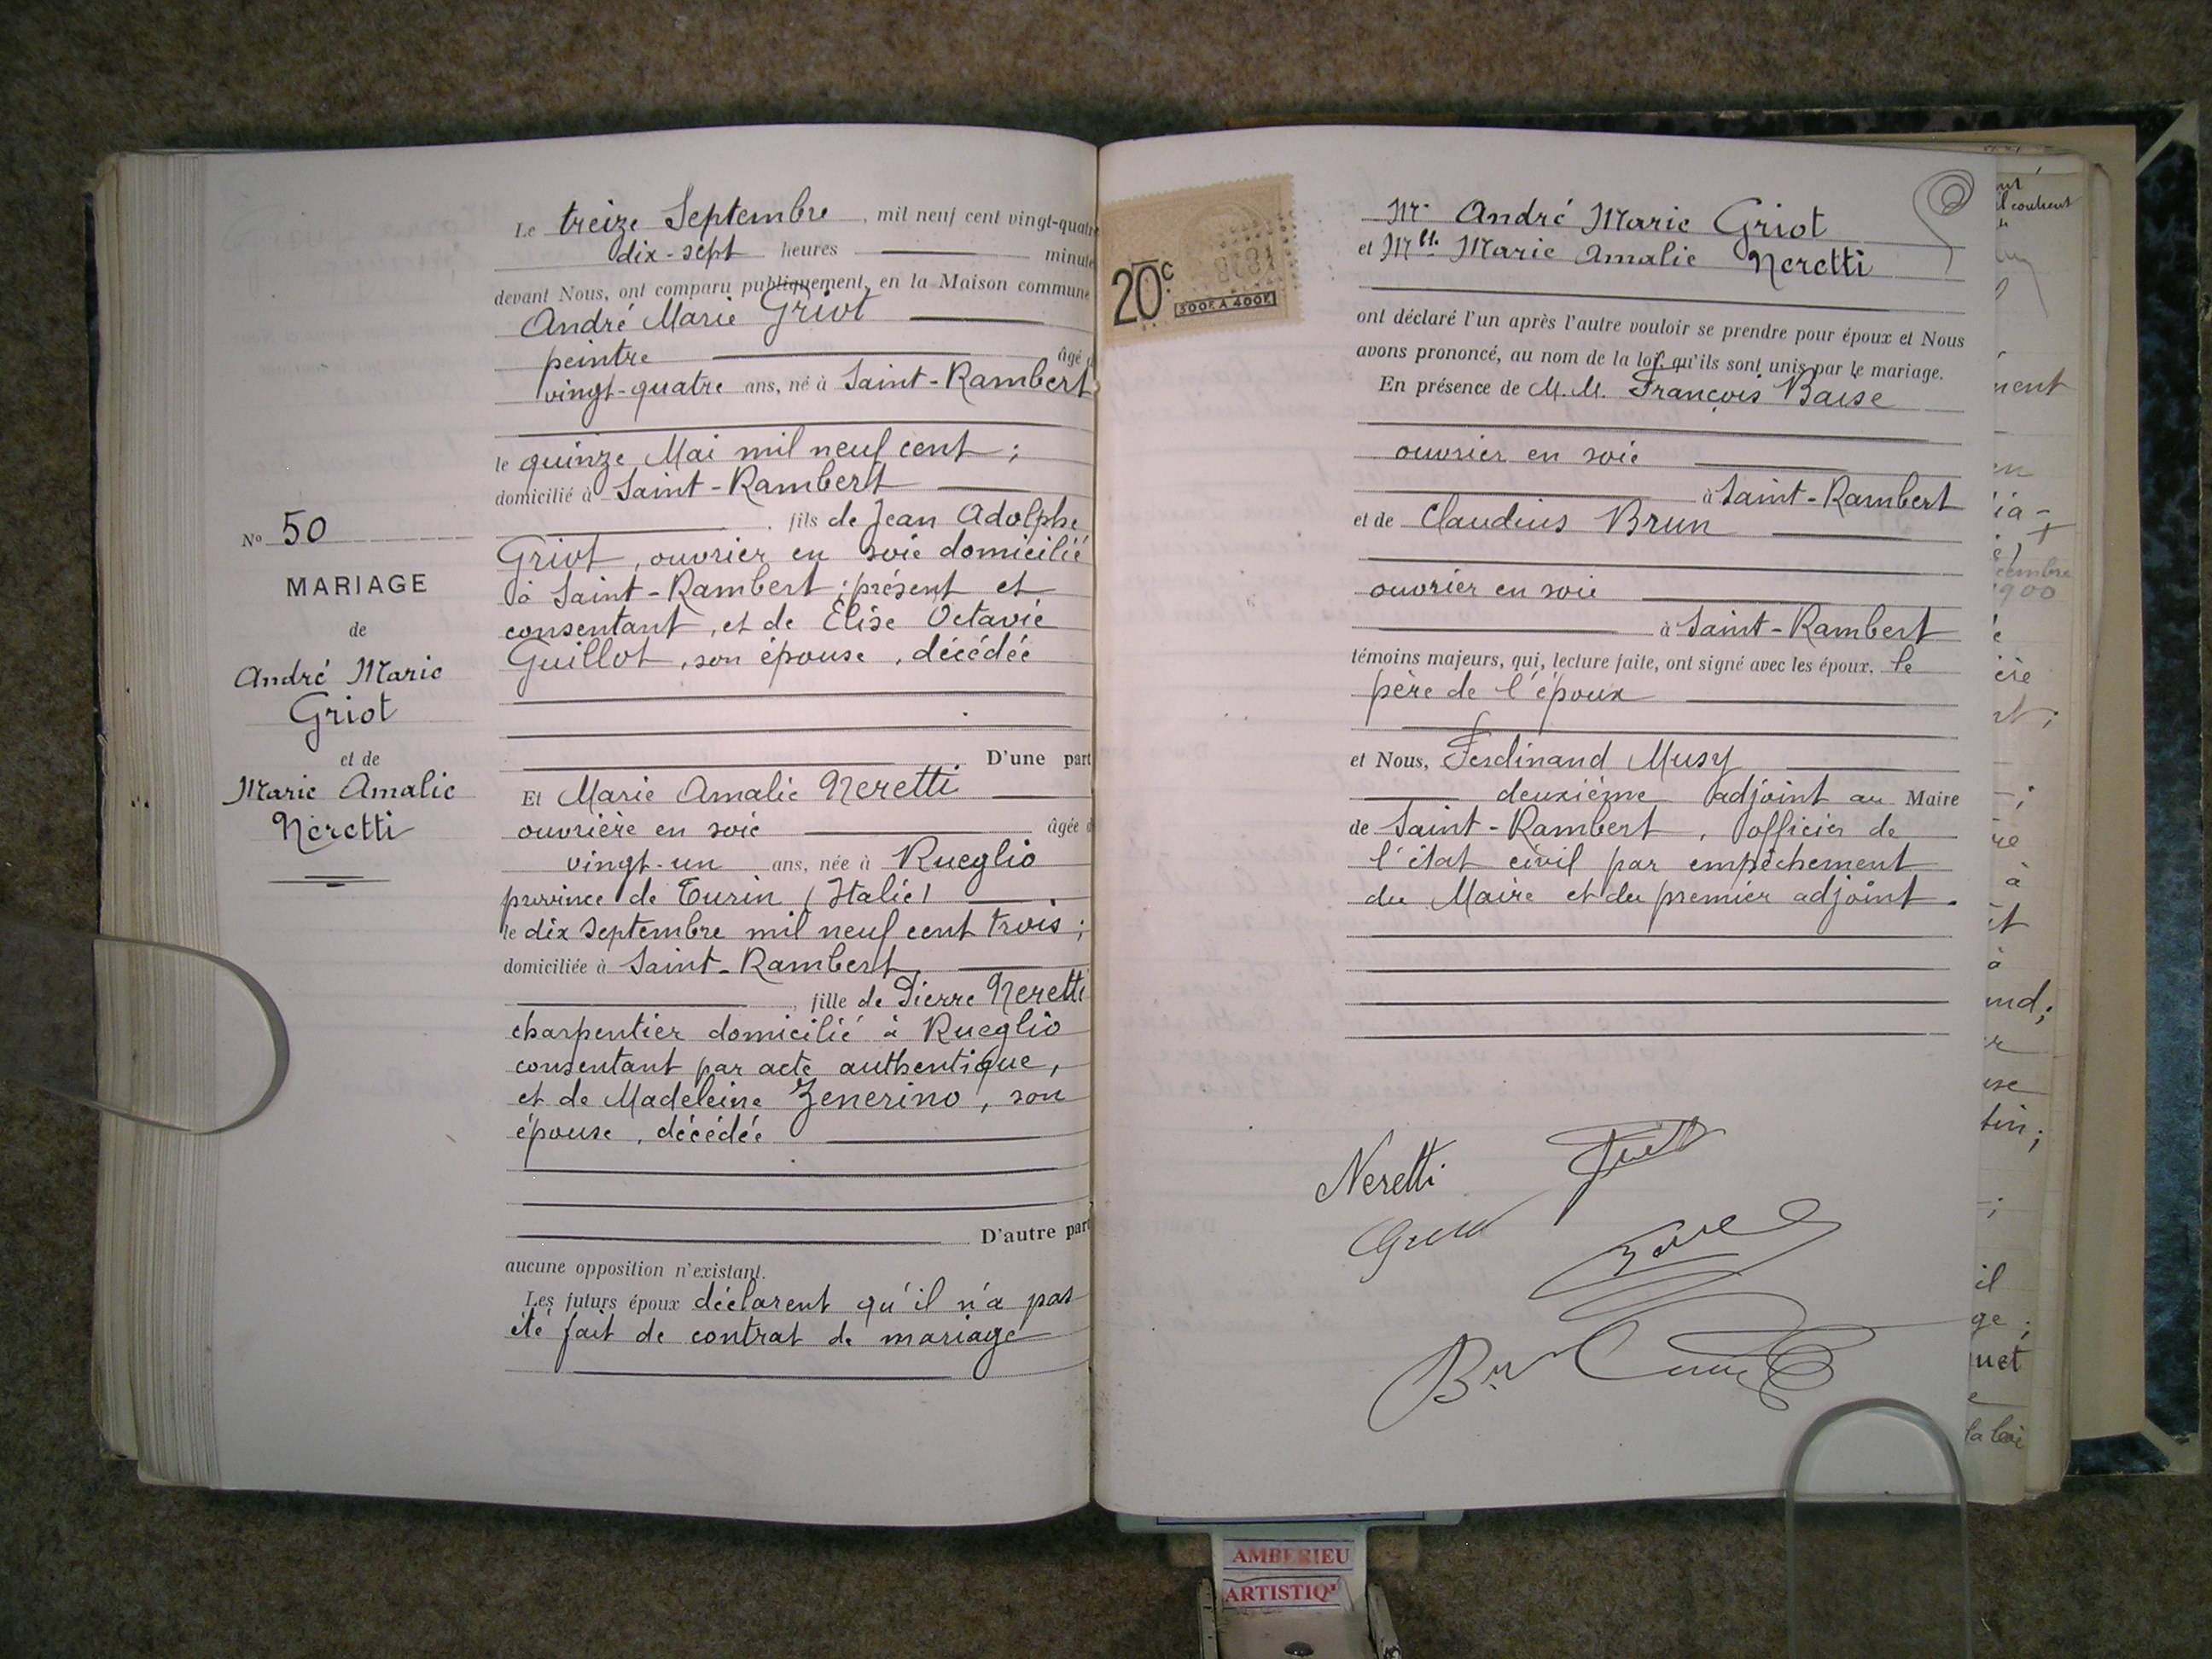 Le treize Septembre, mil neuf cent vingt-quatre
dix-sept heures minute
devant Nous, ont comparu publiquement, en la Maison commune
André Marie Griot
peintre âgé d
vingt-quatre ans, né à Saint-Rambert
le quinze Mai mil neuf cent ;
domicilié à Saint-Rambert
, fils de Jean Adolphe
Griot, ouvrier en soie domicilié
à Saint-Rambert ; présent et
consentant, et de Elise Octavie
Guillot, son épouse, décédée
D'une part
Et Marie Amalie Neretti
ouvrière en soie âgée d
vingt-un ans, née à Rueglio
province de Turin (Italie)
le dix Septembre mil neuf cent trois ;
domiciliée à Saint-Rambert
, fille de Pierre Neretti
charpentier domicilié à Rueglio
consentant par acte authentique,
et de Madeleine Zenerino, son
épouse, décédée
D'autre part
aucune opposition n'existant.
Les futurs époux déclarent qu'il n'a pas
été fait de contrat de mariage
No 50
MARIAGE
de
André Marie
Griot
et de
Marie Amalie
Neretti
20c
300F A 400F
Mr André Marie Griot
et Mlle Marie Amalie Neretti
ont déclaré l'un après l'autre vouloir se prendre pour époux et Nous
avons prononcé, au nom de la loi, qu'ils sont unis par le mariage.
En présence de M.M. François Baise
ouvrier en soie
à Saint-Rambert
et de Claudius Brun
ouvrier en soie
à Saint-Rambert
témoins majeurs, qui, lecture faite, ont signé avec les époux, le
père de l'époux
et Nous, Ferdinand Musy
deuxième adjoint au Maire
de Saint-Rambert, officier de
l'état civil par empêchement
du Maire et du premier adjoint.
Neretti
AMBERIEU
ARTISTIQ